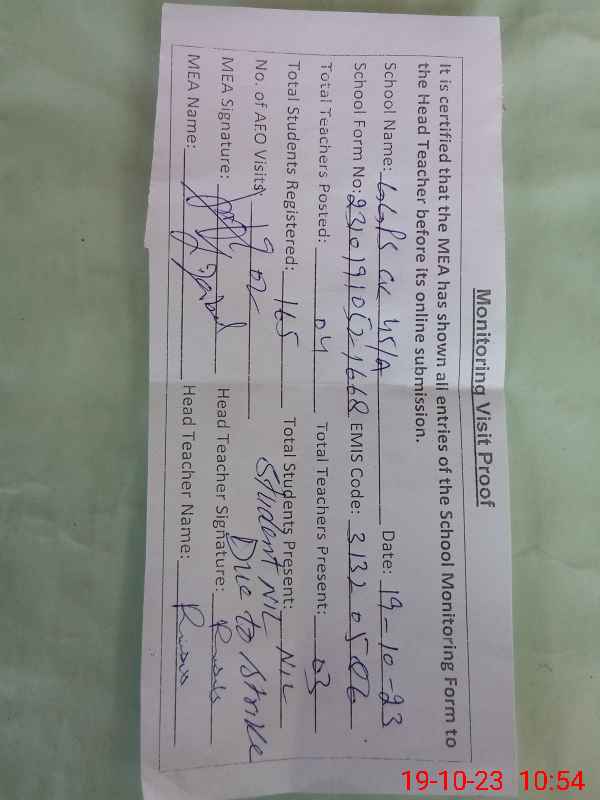 Monitoring Visit Proof
It is certified that the MEA has shown all entries of the School Monitoring Form to
the Head Teacher before its online submission.
School Name: GGPS CK 45/A Date: 19-10-23
School Form No: EMIS Code: 31320506
Total Teachers Posted: 04 Total Teachers Present: 03
Total Students Registered: 165 Total Students Present: NIL
No. of AEO Visits: 02 Student NIL
MEA Signature: Head Teacher Signature: Due to strike
MEA Name: Head Teacher Name:
19-10-23 10:54